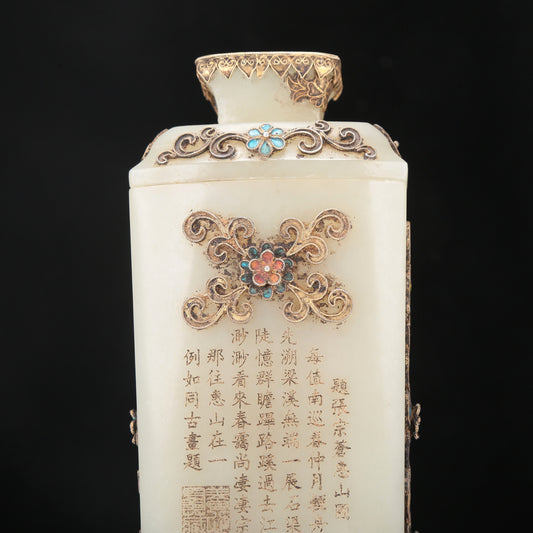 題張宗蒼惠山圖
每值南巡春仲月
先溯梁溪無端一展石渠
陡憶群瞻蹕路蹊過去江
渺渺看來春靄尚凄凄宗
那住惠山在一
例如同古畫題